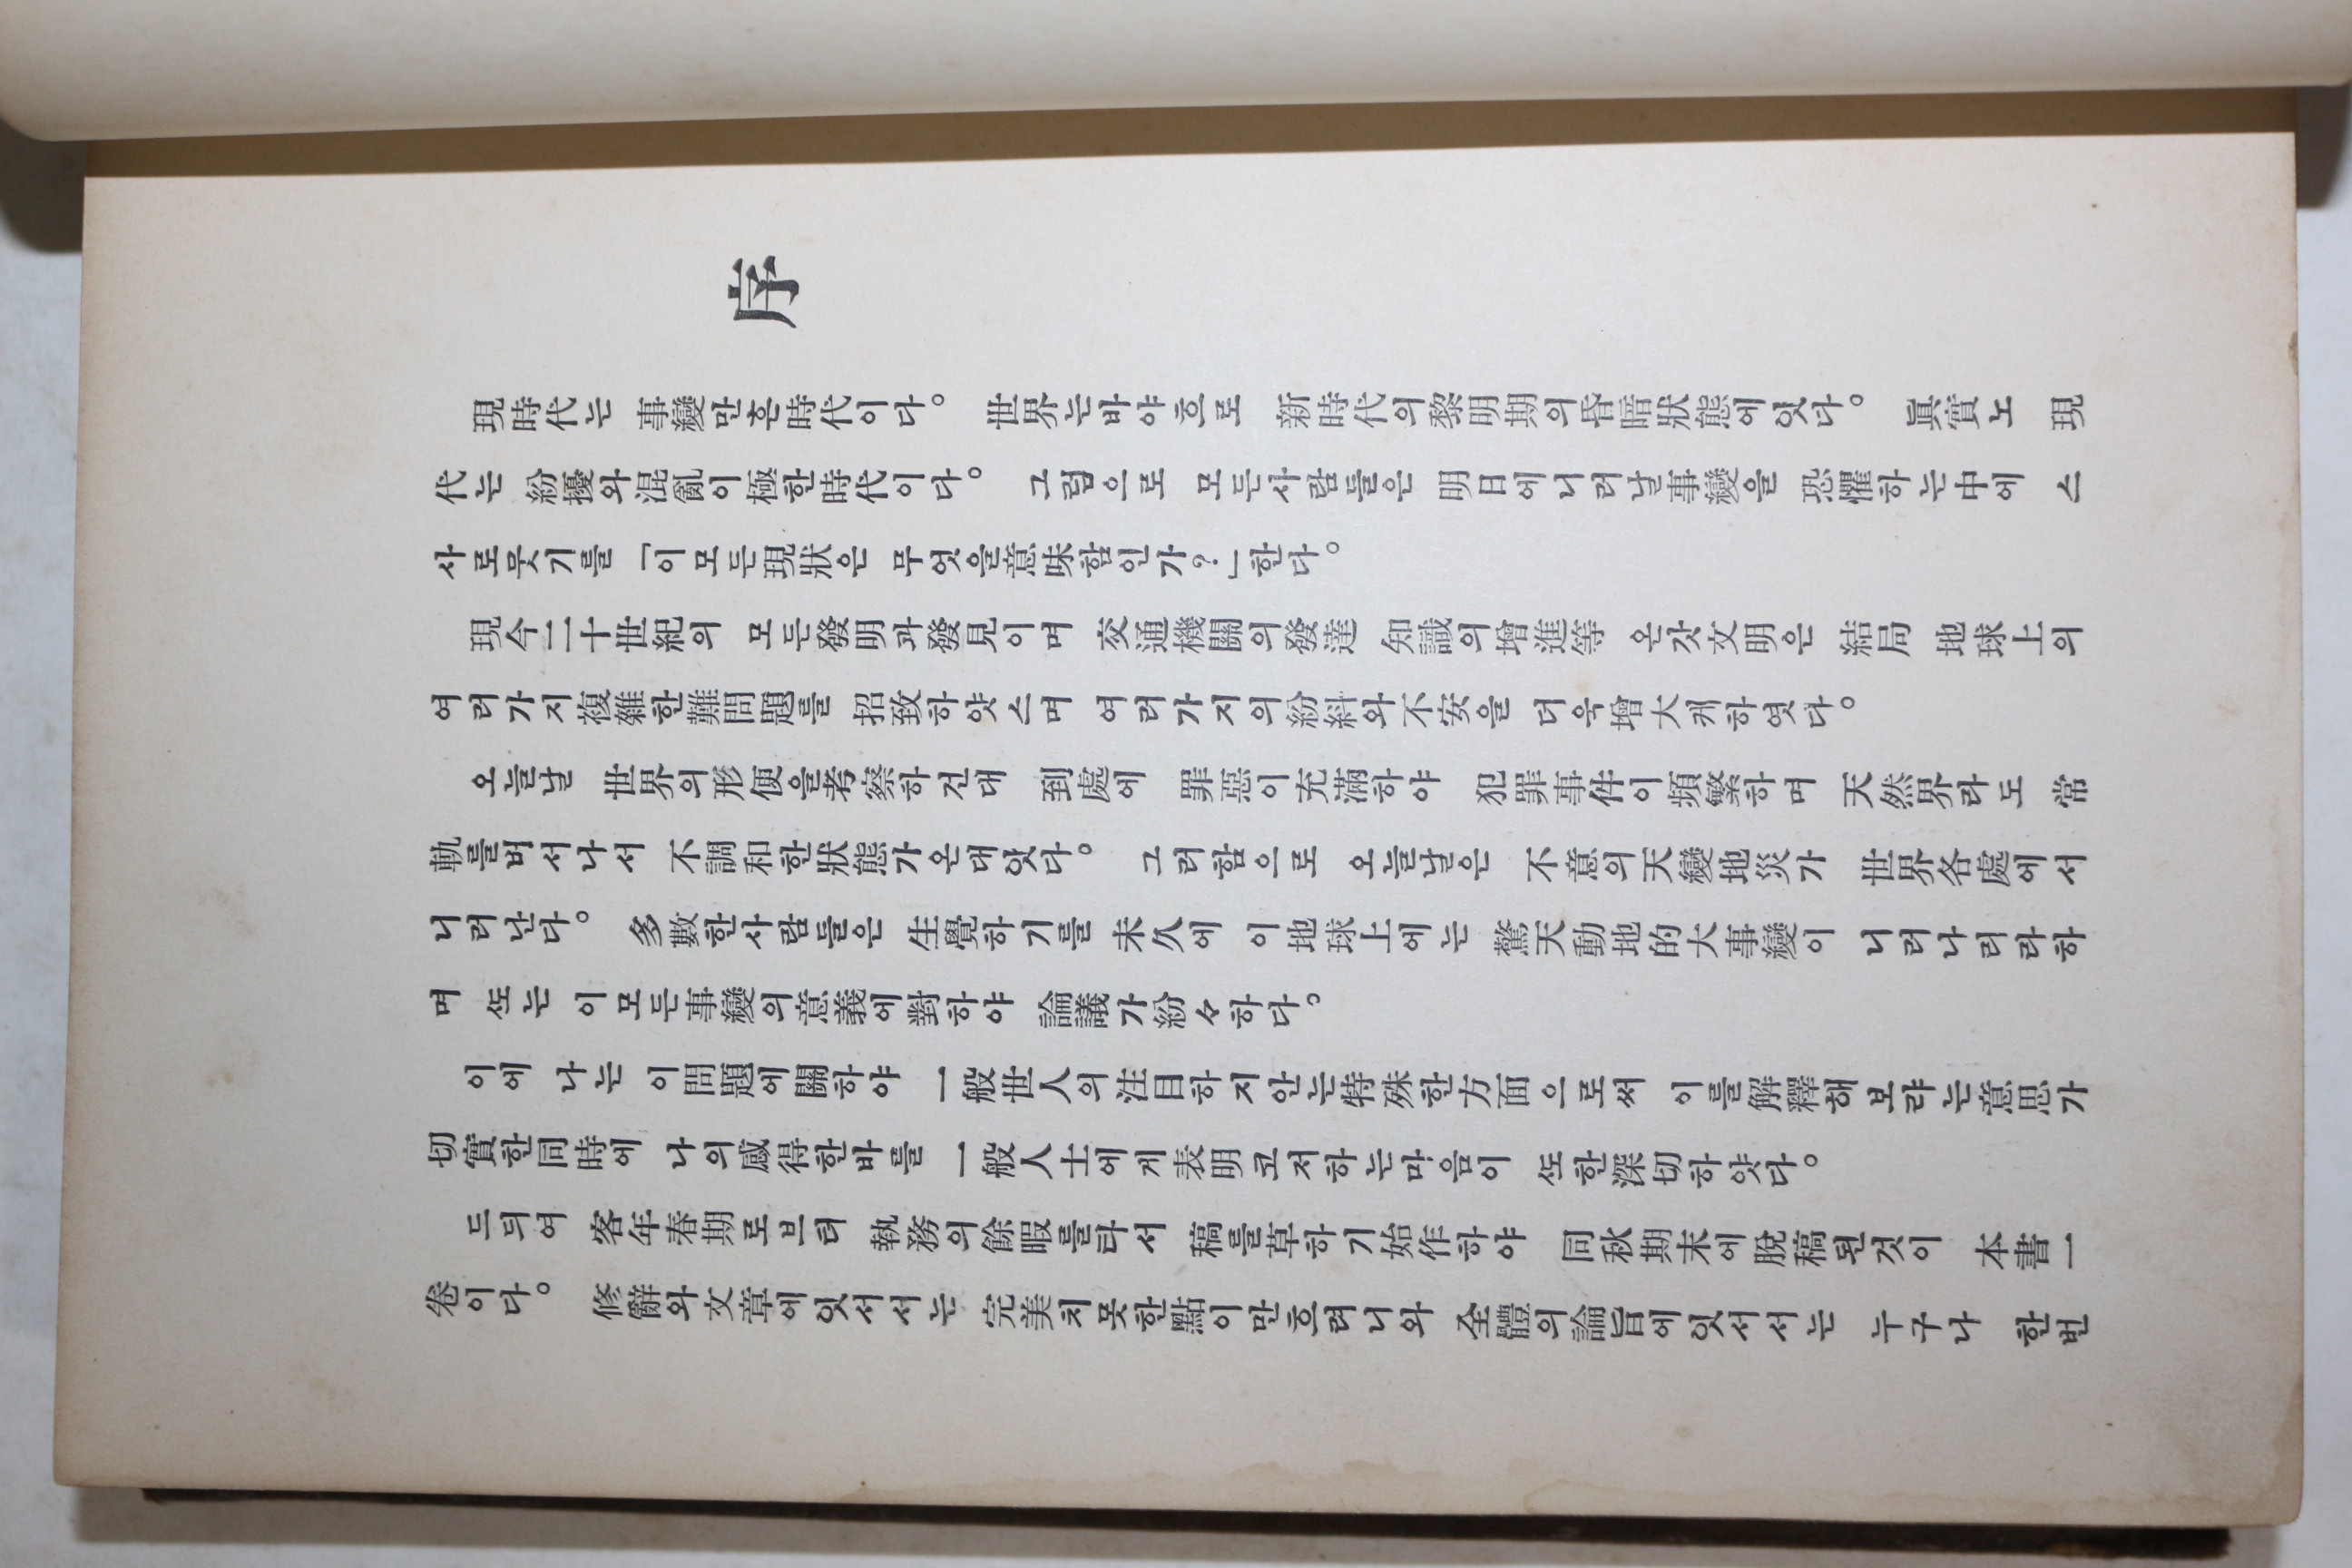 序
現時代는 事變만흔時代이다。 世界는바야흐로 新時代의黎明期의昏暗狀態에잇다。 眞實노 現
代는 紛擾와混亂이極한時代이다。 그럼으로 모든사람들은 明日에니러날事變을 恐懼하는中에 스
사로뭇기를「이모든現狀은 무엇을意味함인가?」한다。
現今二十世紀의 모든發明과發見이며 交通機關의發達 知識의增進等 온갓文明은 結局 地球上의
여러가지複雜한難問題를 招致하얏스며 여러가지의紛糾와不安을 더욱增大케하엿다。
오늘날 世界의形便을考察하건대 到處에 罪惡이充滿하야 犯罪事件이頻繁하며 天然界라도 常
軌를버서나서 不調和한狀態가온대잇다。 그러함으로 오늘날은 不意의天變地災가 世界各處에서
니러난다。 多數한사람들은生覺하기를 未久에 이地球上에는 驚天動地的大事變이 니러나리라하
며 ᄯᅩ는 이모든事變의意義에對하야 論議가紛々하다。
이에 나는 이問題에關하야 一般世人의注目하지안는特殊한方面으로써 이를解釋해보랴는意思가
切實한同時에 나의感得한바를 一般人士에게表明코저하는마음이 ᄯᅩ한深切하얏다。
드듸여 客年春期로브터 執務의餘暇를타서 稿를草하기始作하야 同秋期末에脫稿된것이 本書一
卷이다。 修辭와文章에잇서서는 完美치못한點이만흐려니와 全體의論旨에잇서서는 누구나 한번